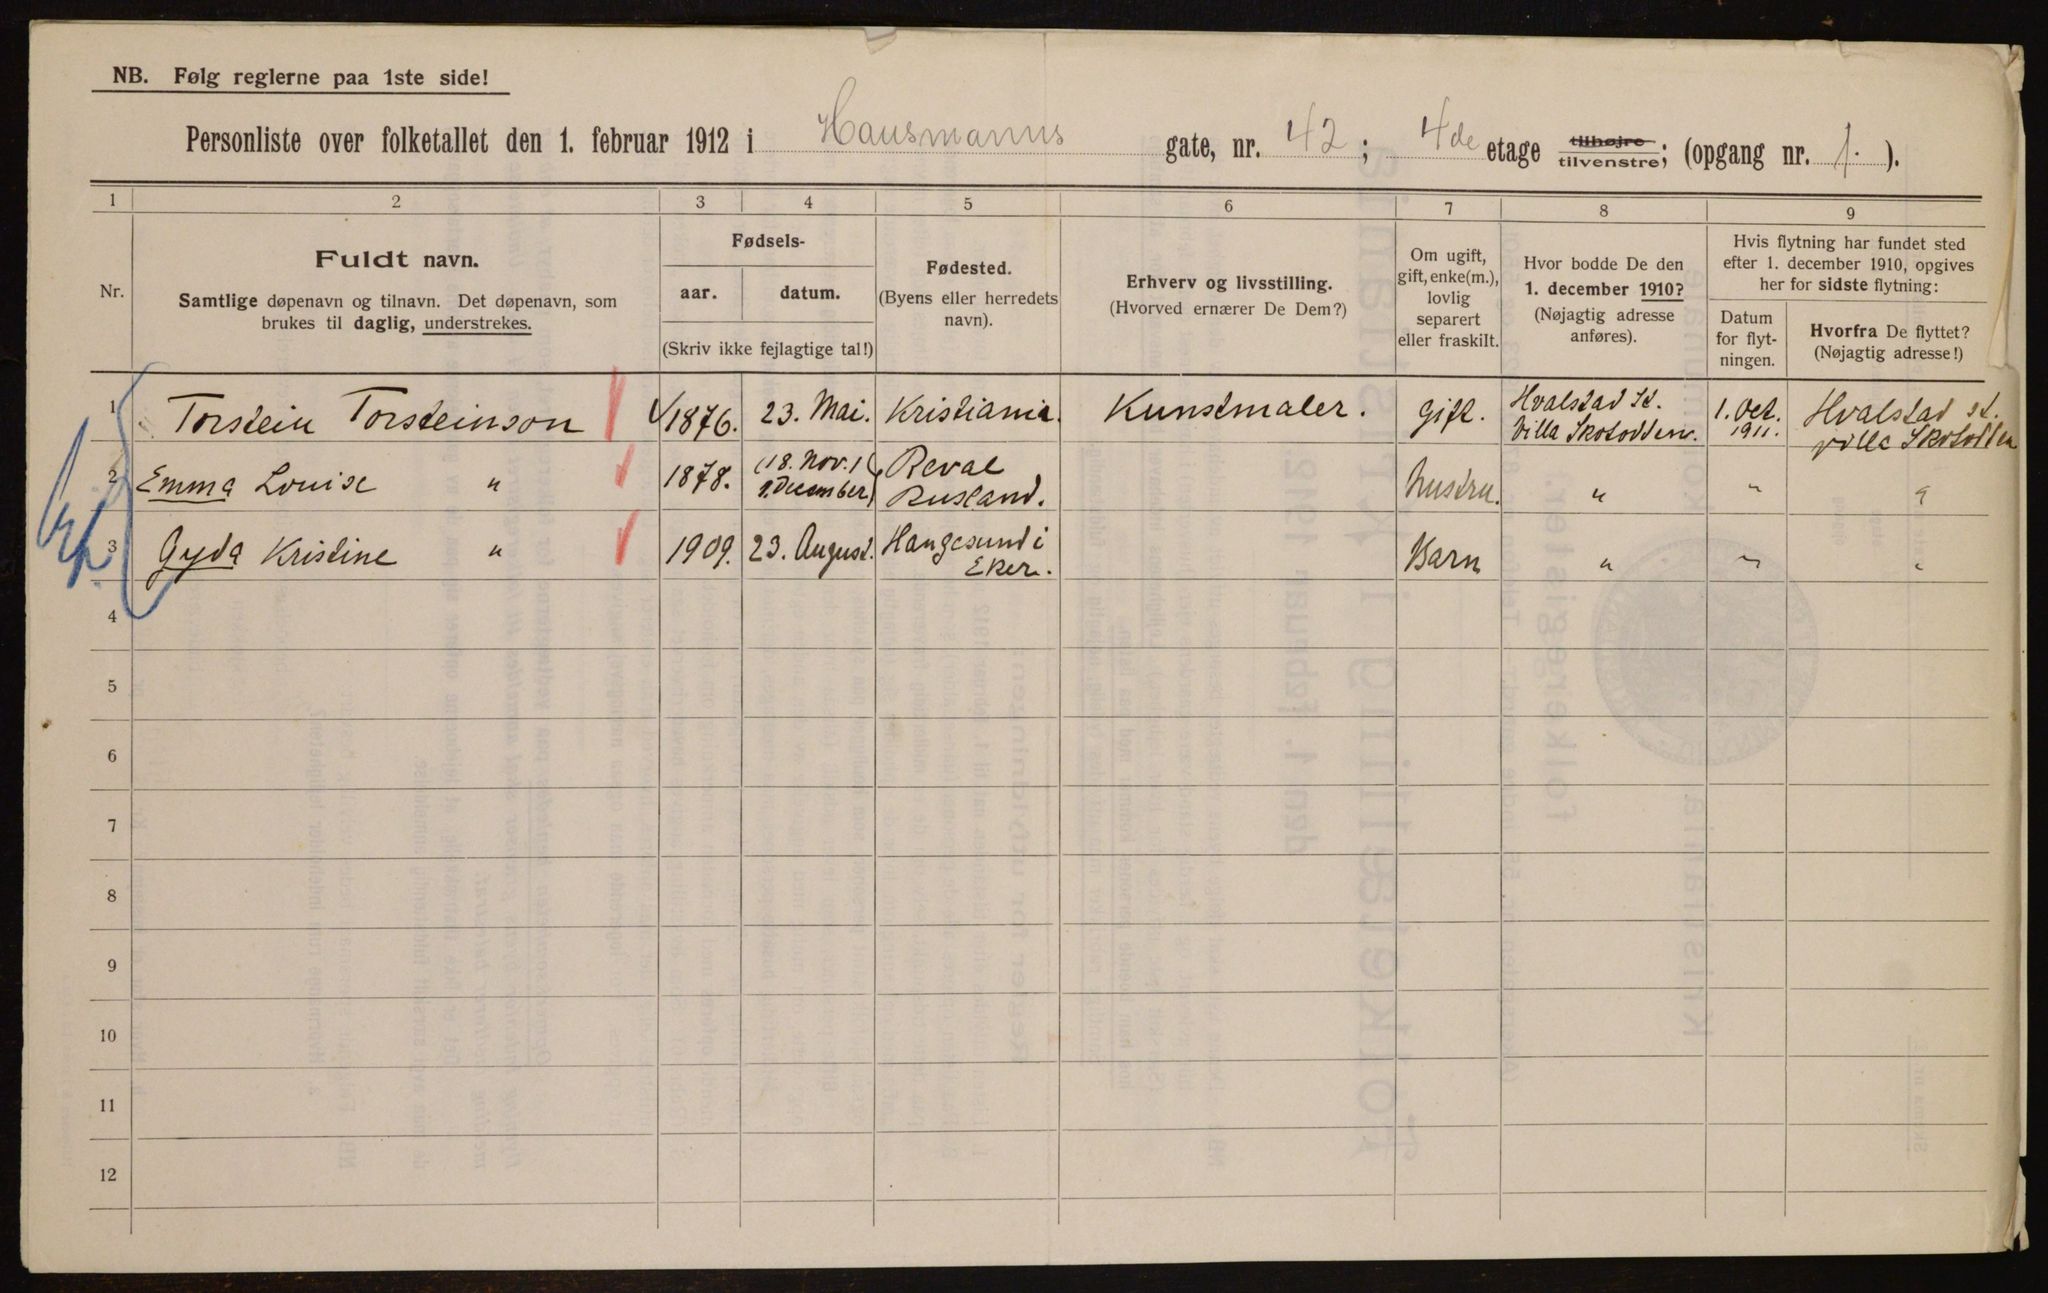 NB. Følg reglerne paa 1ste side!
Personliste over folketallet den 1. februar 1912 i Hausmanns gate, nr. 42; 4de etage tilhøjre tilvenstre; (opgang nr. 1.).
1 2 3 4 5 6 7 8 9
Nr.
Fuldt navn.
Samtlige døpenavn og tilnavn. Det døpenavn, som
brukes til daglig, understrekes.
Fødsels-
aar. datum.
(Skriv ikke fejlagtige tal!)
Fødested.
(Byens eller herredets
navn).
Erhverv og livsstilling.
(Hvorved ernærer De Dem?)
Om ugift,
gift, enke(m.),
lovlig
separert
eller fraskilt.
Hvor bodde De den
1. december 1910?
(Nøjagtig adresse
anføres).
Hvis flytning har fundet sted
efter 1. december 1910, opgives
her for sidste flytning:
Datum
for flyt-
ningen.
Hvorfra De flyttet?
(Nøjagtig adresse!)
1 Torstein Torsteinson 1876. 23. Mai. Kristiania. Kunstmaler. Gift. Hvalstad St. Villa Skotodden. 1. Oct. 1911. Hvalstad st. villa Skotodden
2 Emma Louise " 1878. (18. Nov.) 1. December Reval Rusland. Hustru. " " "
3 Gyda Kristine " 1909. 23. August. Haugesund i Eker. Barn " " "
4
5
6
7
8
9
10
11
12